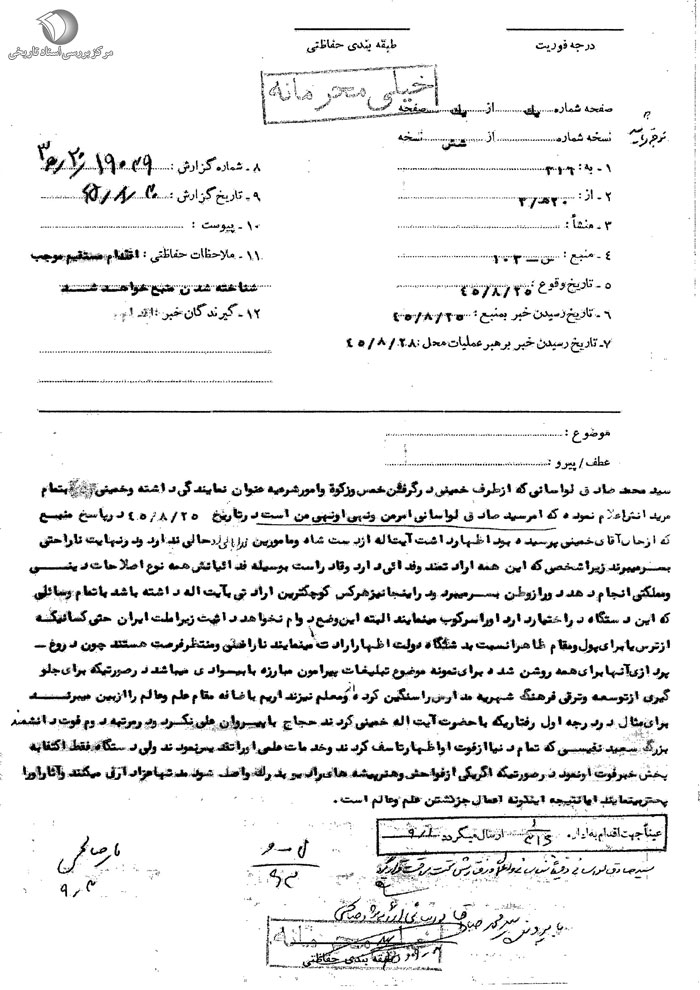 مرکز بررسی اسناد تاریخی
درجه فوریت
طبقه بندی حفاظتی
خیلی محرمانه
صفحه شماره یك از یك صفحه
نسخه شماره از شش نسخه
۱ـ به : ۳۱۶
۲ـ از: ۲۰هـ/۳
۳ـ منشأ :
۴ـ منبع : س ـ ۱۰۳
۵ـ تاریخ وقوع : ۴۵/۸/۲۵
۶ـ تاریخ رسیدن خبر بمنبع : ۴۵/۸/۲۵
۷ـ تاریخ رسیدن خبر برهبر عملیات محل : ۴۵/۸/۲۸
۸ـ شماره گزارش : ۱۹۰۴۹
۹ـ تاریخ گزارش : ۴۵/۸/۳۰
۱۰ـ پیوست :
۱۱ـ ملاحظات حفاظتی : اقدام مستقیم موجب
شناخته شدن منبع خواهد شد
۱۲ـ گیرندگان خبر :
موضوع :
عطف / پیرو :
سید محمد صادق لواسانی که ازطرف خمینی درگرفتن خمس وزکوة وامورشرعیه عنوان نمایندگی داشته وخمینی بتمام
مریدانش اعلام نموده که امرسید صادق لواسانی امرمن ونهی اونهی من است درتاریخ ۴۵/۸/۲۵ درپاسخ منبع
که ازحال آقای خمینی پرسیده بود اظهارداشت آیت اله ازدست شاه ومامورین حالی ندارد ودرنهایت ناراحتی
بسرمیبرند زیراشخصی که این همه ارادتمند وفدائی دارد وقادراست بوسیله فدائیانش همه نوع اصلاحات دینی
ومملکتی انجام دهد دورازوطن بسرمیبرد ودراینجانیزهرکس کوچکترین ارادتی بآیت اله داشته باشد باتمام وسائلی
که این دستگاه دراختیاردارد اوراسرکوب مینمایند البته این وضع دوام نخواهد داشت زیراملت ایران حتی کسانیکه
ازترس یابرای پول ومقام ظاهرانسبت بدستگاه دولت اظهارارادت مینمایند ناراضی ومنتظرفرصت هستند چون دروغ ـ
پردازی آنهابرای همه روشن شده برای نمونه موضوع تبلیغات پیرامون مبارزه بابیسوادی میباشد درصورتیکه برای جلو
گیری ازتوسعه وترقی فرهنگ شهریه مدارس راسنگین کرده ومعلم نیزندارند باضافه مقام علم وعالم را ازبین میبرند
برای مثال دردرجه اول رفتاریکه باحضرت آیت اله خمینی کردند حجاج باپیروان علی نکرد ودرمرتبه دوم فوت دانشمند
بزرگ سعید نفیسی که تمام دنیاازفوت اواظهارتاسف کردند وخدمات علمی اوراتقدیس نمودند ولی دستگاه فقط اکتفابه
پخش خبرفوت اونمود درصورتیکه اگریکی ازفواحش وهنرپیشه های رادیو بدرك واصل شود مدتهاعزاداری میکنند وآثاراورا
پخش مینمایند امانتیجه اینگونه اعمال جزکشتن علم وعالم است .
عیناً جهت اقدام به اداره ۳۱۶ ارسال میگردد ۹/۱
خیلی محرمانه
طبقه بندی حفاظتی